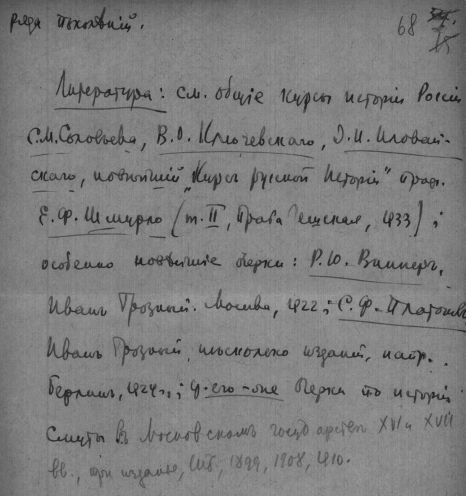 ряда поколѣній. 68
Литература: см. общіе курсы исторіи Россіи
С.М. Соловьева, В.О. Ключевскаго, Д.И. Иловай-
скаго, новѣйшій „Курсъ русской Исторіи" проф.
Е.Ф. Шмурло (т. II, Прага Чешская, 1933);
особенно новѣйшіе очерки: Р.Ю. Випперъ,
Иванъ Грозный. Москва, 1922; С.Ф. Платоновъ
Иванъ Грозный, нѣсколько изданій, напр.
Берлинъ, 1924.; его-же Очерки по исторіи
Смуты въ Московскомъ государствѣ XVI и XVII
вв., три изданія, СПб., 1899, 1908, 1910.